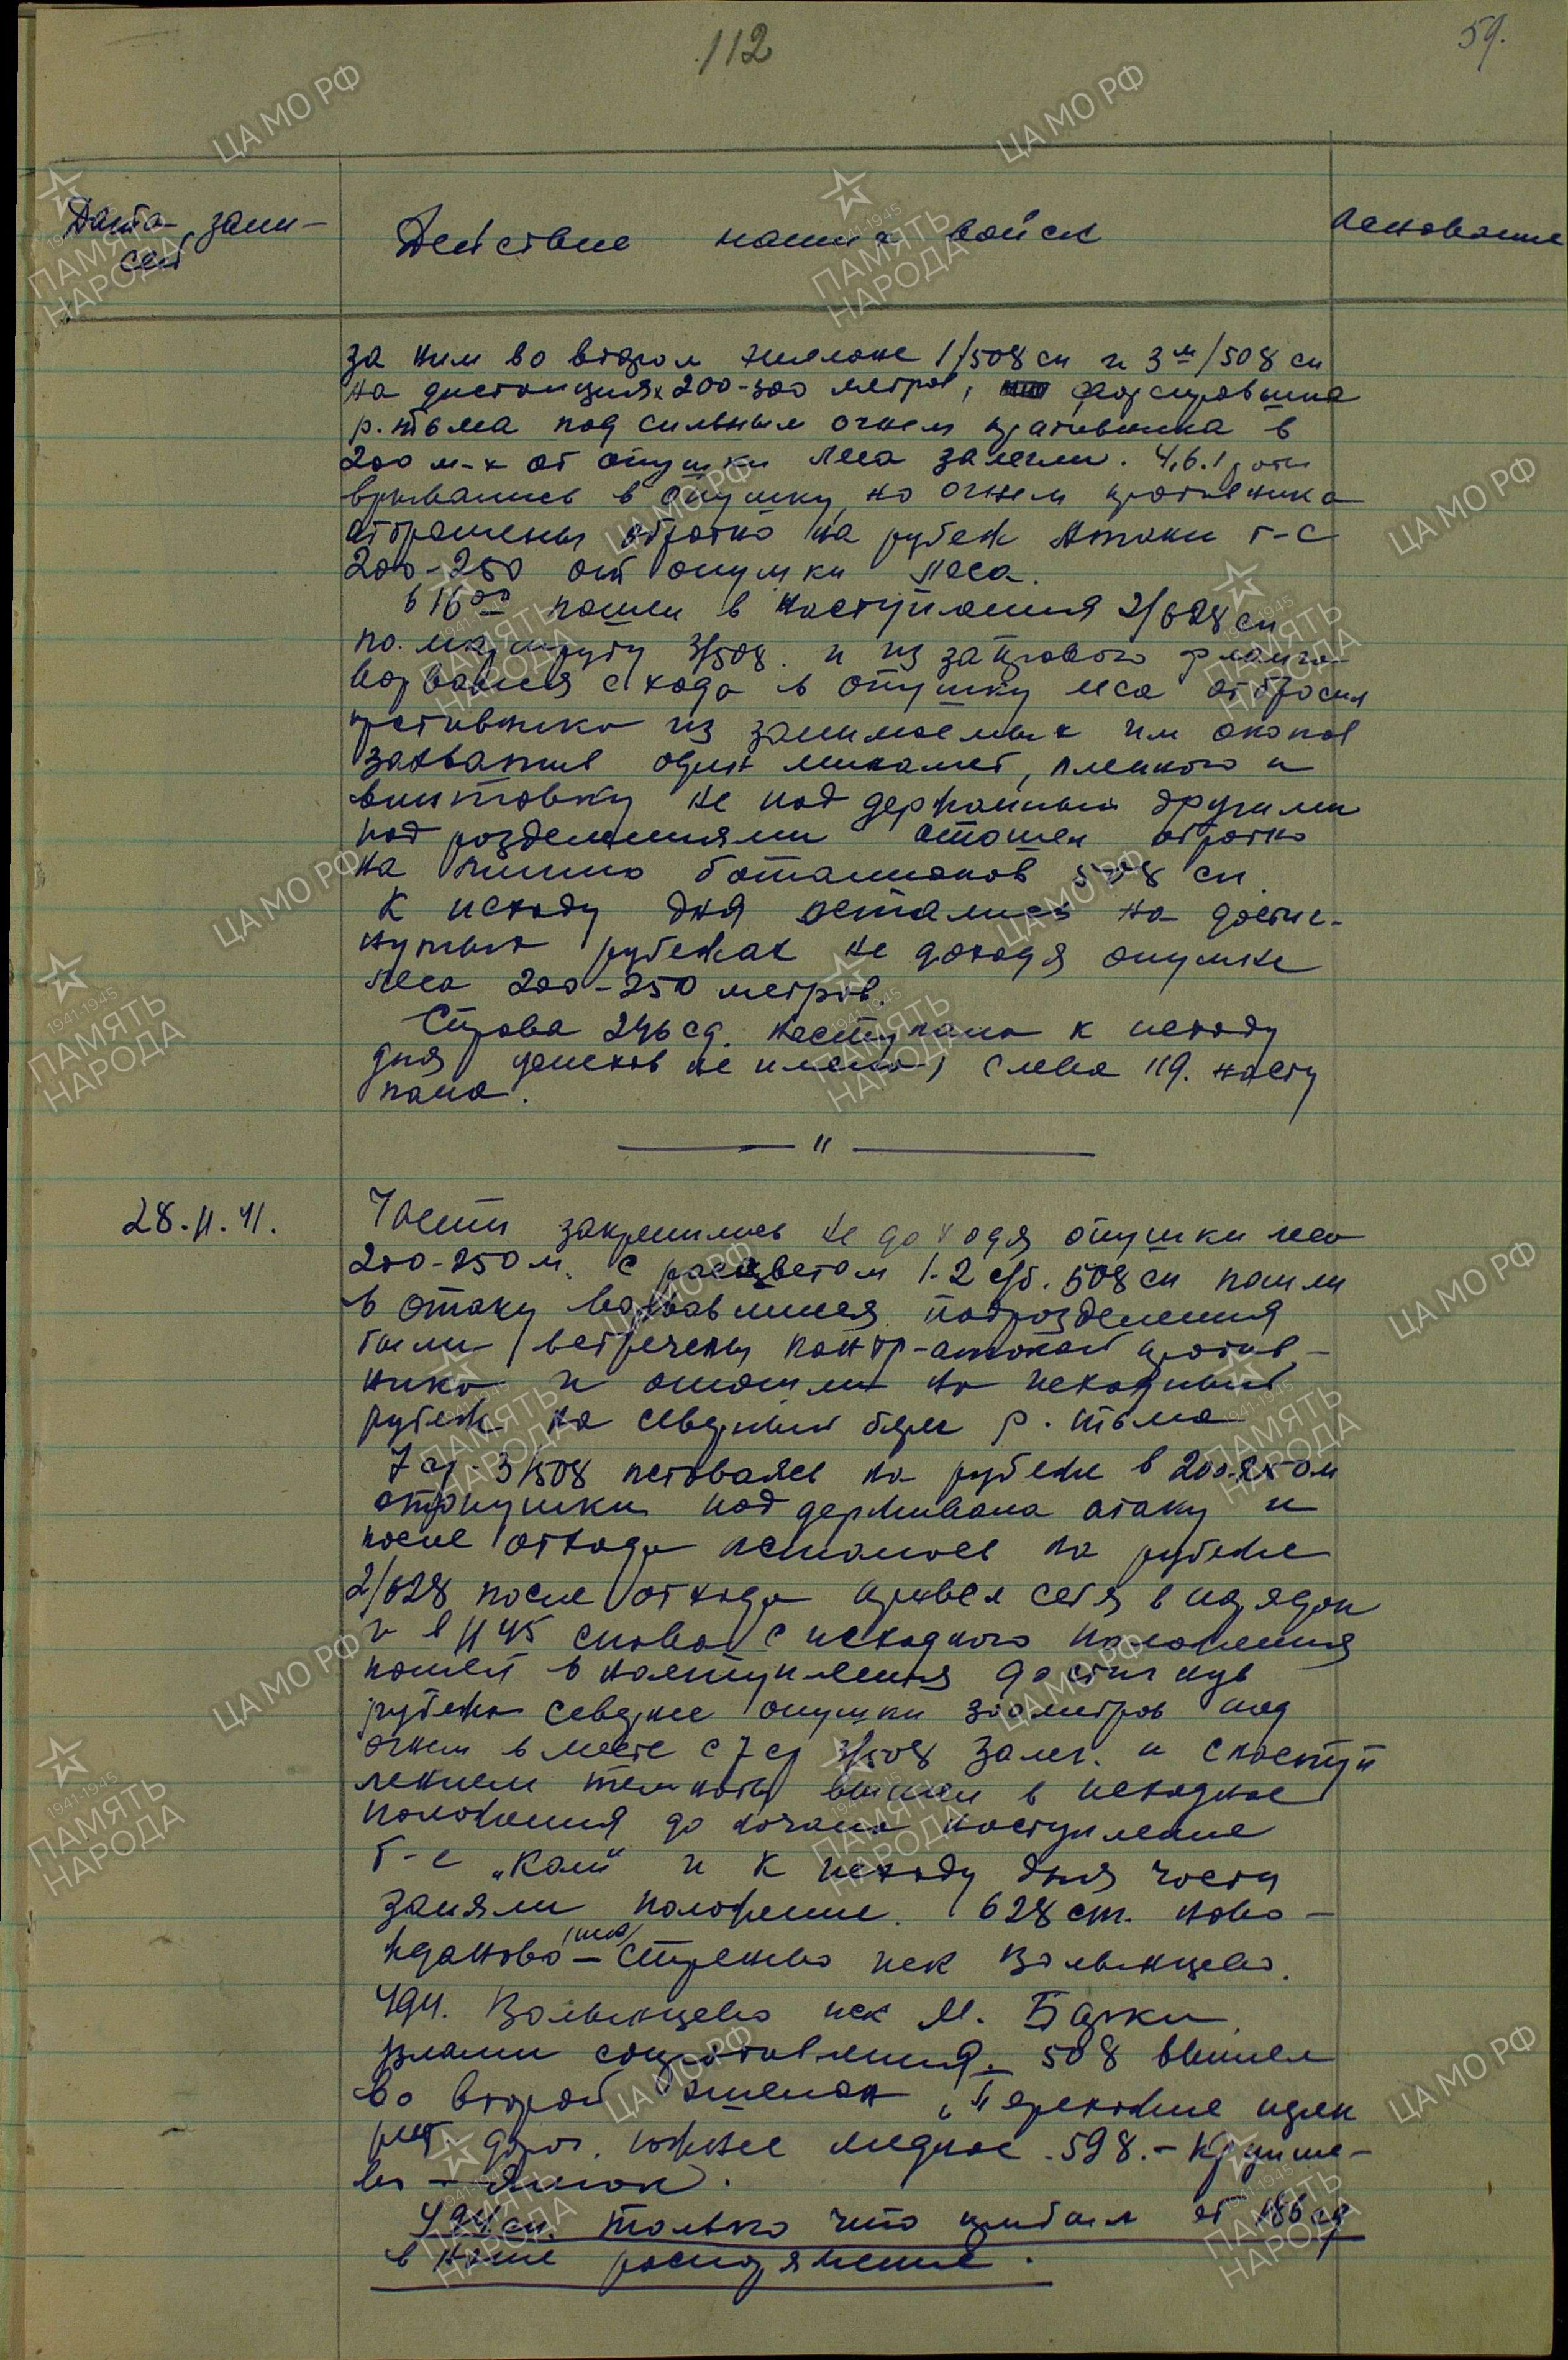 112
59.
Дата запи-
сей
Действие наших войск
Основание
за ним во втором эшелоне 1/508 сп и 3й/508 сп
на дистанциях 200-300 метров, форсировавшие
р. Тьма под сильным огнем противника в
200 м-х от опушки леса залегли. 4,6.1 роты
врывались в опушку, но огнем противника
отброшены обратно на рубеж атаки т-с
200-250 от опушки леса.
в 16 00 пошел в наступления 2/628 сп
по маршруту 3/508. и из за правого фланга
ворвался с хода в опушку леса отбросил
противника из занимаемых им окопов
захватив один миномет, пленного и
винтовку не поддержанный другими
подразделениями отошел обратно
на линию батальонов 508 сп.
К исходу дня остались на достиг-
нутых рубежах не доходя опушки
леса 200-250 метров.
Справа 246 сд. наступала к исходу
дня успехов не имела, слева 119. насту
пала.
"
28.11.41.
Части закрепились не доходя опушки леса
200-250 м. С рассветом 1-2 сб. 508 сп пошли
в атаку ворвавшиеся подразделения
были встречены контр-атакой против-
ника и отошли на исходный
рубеж на северный берег р. Тьма
7 ср. 3/508 оставаясь на рубеже в 200-250 м
от опушки поддерживала атаку и
после отхода осталась на рубеже
2/628 после отхода привел себя в порядок
и в 11 45 снова с исходного положения
пошел в наступления достигнув
рубежа севернее опушки 300 метров под
огнем вместе с 7 ср 3/508 залег. и с наступ
лением темноты вышли в исходное
положения до начала наступление
т-е и к исходу дня части
заняли положение. 628 сп. ново-
(иск)
Жданово - Стренево иск Волынцево.
494. Волынцево иск М. Борки.
508 вышел
во второй эшелон,
дорог. южнее Медное. 598. -
Ямок.
494 сп. только что прибыл от 186 сд
в наше распоряжение.
ЦАМО РФ
1941-1945
ПАМЯТЬ
НАРОДА